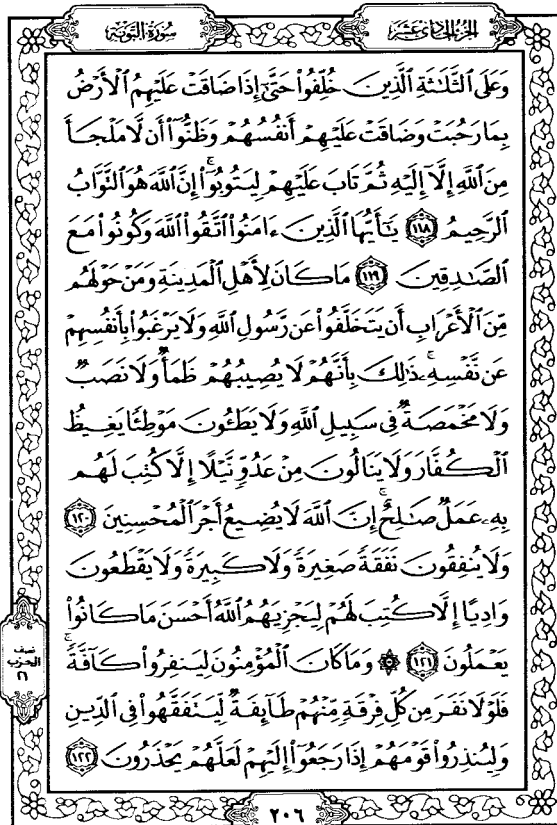 سُورَةُ التَّوْبَةِ
الجُزْءُ الحَادِي عَشَرَ
وَعَلَى ٱلثَّلَٰثَةِ ٱلَّذِينَ خُلِّفُوا۟ حَتَّىٰٓ إِذَا ضَاقَتْ عَلَيْهِمُ ٱلْأَرْضُ
بِمَا رَحُبَتْ وَضَاقَتْ عَلَيْهِمْ أَنفُسُهُمْ وَظَنُّوٓا۟ أَن لَّا مَلْجَأَ
مِنَ ٱللَّهِ إِلَّآ إِلَيْهِ ثُمَّ تَابَ عَلَيْهِمْ لِيَتُوبُوٓا۟ ۚ إِنَّ ٱللَّهَ هُوَ ٱلتَّوَّابُ
ٱلرَّحِيمُ ﴿١١٨﴾ يَٰٓأَيُّهَا ٱلَّذِينَ ءَامَنُوا۟ ٱتَّقُوا۟ ٱللَّهَ وَكُونُوا۟ مَعَ
ٱلصَّٰدِقِينَ ﴿١١٩﴾ مَا كَانَ لِأَهْلِ ٱلْمَدِينَةِ وَمَنْ حَوْلَهُم
مِّنَ ٱلْأَعْرَابِ أَن يَتَخَلَّفُوا۟ عَن رَّسُولِ ٱللَّهِ وَلَا يَرْغَبُوا۟ بِأَنفُسِهِمْ
عَن نَّفْسِهِۦ ۚ ذَٰلِكَ بِأَنَّهُمْ لَا يُصِيبُهُمْ ظَمَأٌ وَلَا نَصَبٌ
وَلَا مَخْمَصَةٌ فِى سَبِيلِ ٱللَّهِ وَلَا يَطَـُٔونَ مَوْطِئًا يَغِيظُ
ٱلْكُفَّارَ وَلَا يَنَالُونَ مِنْ عَدُوٍّ نَّيْلًا إِلَّا كُتِبَ لَهُم
بِهِۦ عَمَلٌ صَٰلِحٌ ۚ إِنَّ ٱللَّهَ لَا يُضِيعُ أَجْرَ ٱلْمُحْسِنِينَ ﴿١٢٠﴾
وَلَا يُنفِقُونَ نَفَقَةً صَغِيرَةً وَلَا كَبِيرَةً وَلَا يَقْطَعُونَ
وَادِيًا إِلَّا كُتِبَ لَهُمْ لِيَجْزِيَهُمُ ٱللَّهُ أَحْسَنَ مَا كَانُوا۟
يَعْمَلُونَ ﴿١٢١﴾ ۞ وَمَا كَانَ ٱلْمُؤْمِنُونَ لِيَنفِرُوا۟ كَآفَّةً ۚ
فَلَوْلَا نَفَرَ مِن كُلِّ فِرْقَةٍ مِّنْهُمْ طَآئِفَةٌ لِّيَتَفَقَّهُوا۟ فِى ٱلدِّينِ
وَلِيُنذِرُوا۟ قَوْمَهُمْ إِذَا رَجَعُوٓا۟ إِلَيْهِمْ لَعَلَّهُمْ يَحْذَرُونَ ﴿١٢٢﴾
نصف
الحزب
٢١
٢٠٦